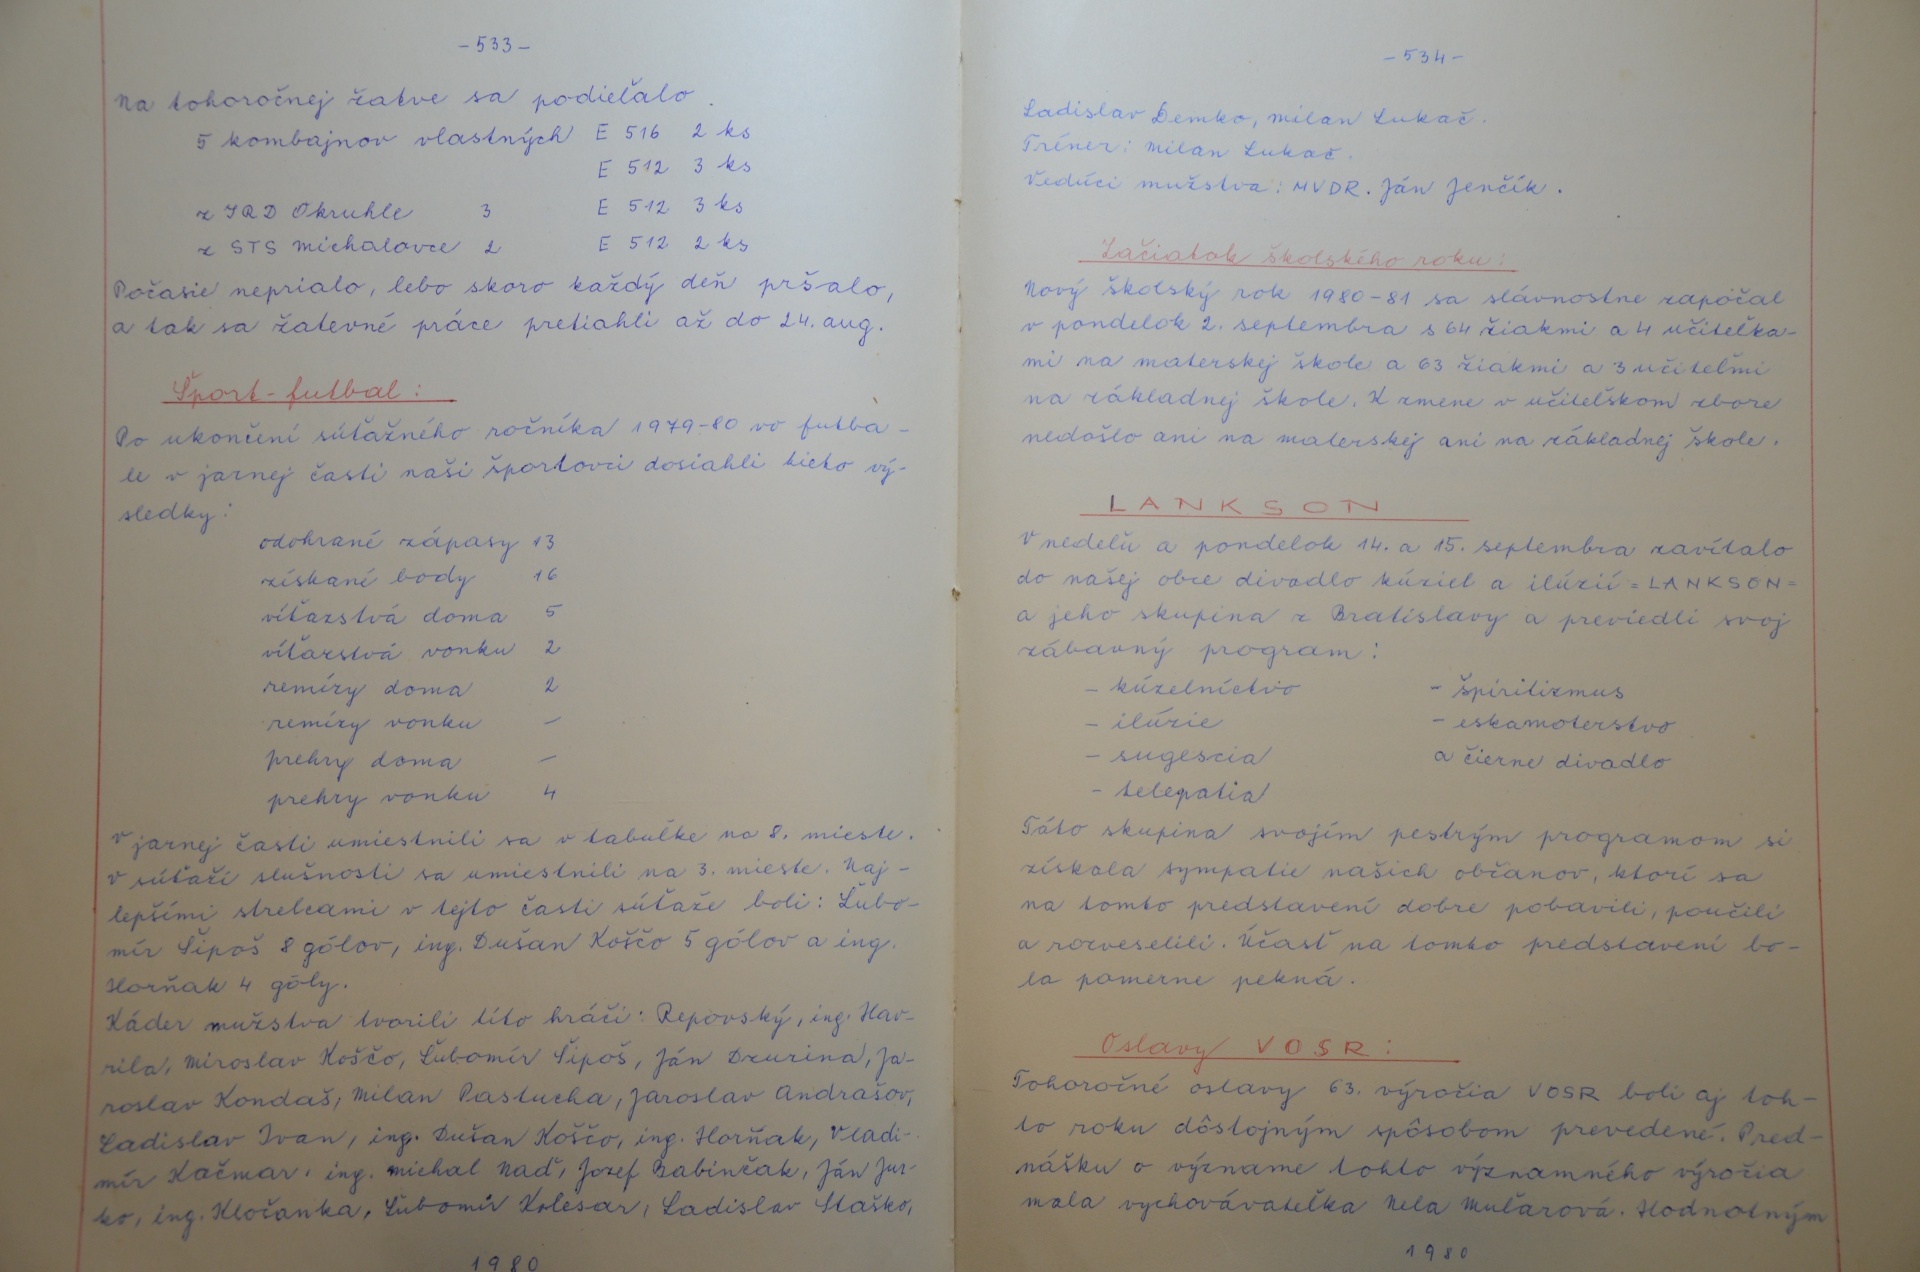 -533-
Na tohoročnej žatve sa podieľalo.
5 kombajnov vlastných E 516 2 ks
E 512 3 ks
z JRD Okruhle 3 E 512 3 ks
z STS Michalovce 2 E 512 2 ks
Počasie neprialo, lebo skoro každý deň pršalo,
a tak sa žatevné práce pretiahli až do 24. aug.
Šport-futbal:
Po ukončení súťažného ročníka 1979-80 vo futba-
le v jarnej časti naši športovci dosiahli tieto vý-
sledky:
odohrané zápasy 13
získané body 16
víťazstvá doma 5
víťazstvá vonku 2
remízy doma 2
remízy vonku -
prehry doma -
prehry vonku 4
V jarnej časti umiestnili sa v tabuľke na 8. mieste.
V súťaží slušnosti sa umiestnili na 3. mieste. Naj-
lepšími strelcami v tejto časti súťaže boli: Ľubo-
mír Šipoš 8 gólov, ing. Dušan Koščo 5 gólov a ing.
Horňak 4 góly.
Káder mužstva tvorili títo hráči: Repovský, ing. Hav-
rila, Miroslav Koščo, Ľubomír Šipoš, Ján Dzurina, Ja-
roslav Kondaš, Milan Pastucha, Jaroslav Andrašov,
Ladislav Ivan, ing. Dušan Koščo, ing. Horňak, Vladi-
mír Kačmar, ing. Michal Naď, Jozef Babinčak, Ján Jur-
ko, ing. Kločanka, Ľubomír Kolesar, Ladislav Staško,
1980
-534-
Ladislav Demko, Milan Lukač.
Tréner: Milan Lukač.
Vedúci mužstva: MVDR. Ján Jenčík.
Začiatok školského roku:
Nový školský rok 1980-81 sa slávnostne započal
v pondelok 2. septembra s 64 žiakmi a 4 učiteľka-
mi na materskej škole a 63 žiakmi a 3 učiteľmi
na základnej škole. K zmene v učiteľskom zbore
nedošlo ani na materskej ani na základnej škole.
LANKSON
V nedeľu a pondelok 14. a 15. septembra zavítalo
do našej obce divadlo kúziel a ilúzií = LANKSON =
a jeho skupina z Bratislavy a previedli svoj
zábavný program:
- kúzelníctvo - špiritizmus
- ilúzie - eskamoterstvo
- sugescia a čierne divadlo
- telepatia
Táto skupina svojím pestrým programom si
získala sympatie našich občanov, ktorí sa
na tomto predstavení dobre pobavili, poučili
a rozveselili. Účasť na tomto predstavení bo-
la pomerne pekná.
Oslavy VOSR:
Tohoročné oslavy 63. výročia VOSR boli aj toh-
to roku dôstojným spôsobom prevedené. Pred-
nášku o význame tohto významného výročia
mala vychovávateľka Nela Mulárová. Hodnotným
1980